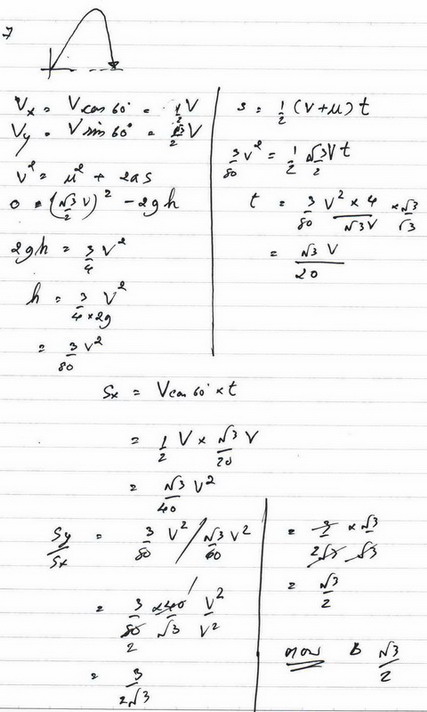 7
Vx = V cos 60° = 1/2 V
Vy = V sin 60° = √3/2 V
v² = u² + 2as
0 = (√3/2 V)² - 2gh
2gh = 3/4 V²
h = 3/(4×2g) V²
= 3/80 V²
s = 1/2 (v+u) t
3/80 v² = 1/2 √3/2 V t
t = 3/80 V² × 4/√3V × √3/√3
= √3 V/20
Sx = V cos 60° × t
= 1/2 V × √3/20 V
= √3/40 V²
Sy/Sx = 3/80 V² / √3/60 V²
= 3/80 × 40/√3 V²/V²
2
= 3/2√3
= 3/2√3 × √3/√3
= √3/2
B √3/2